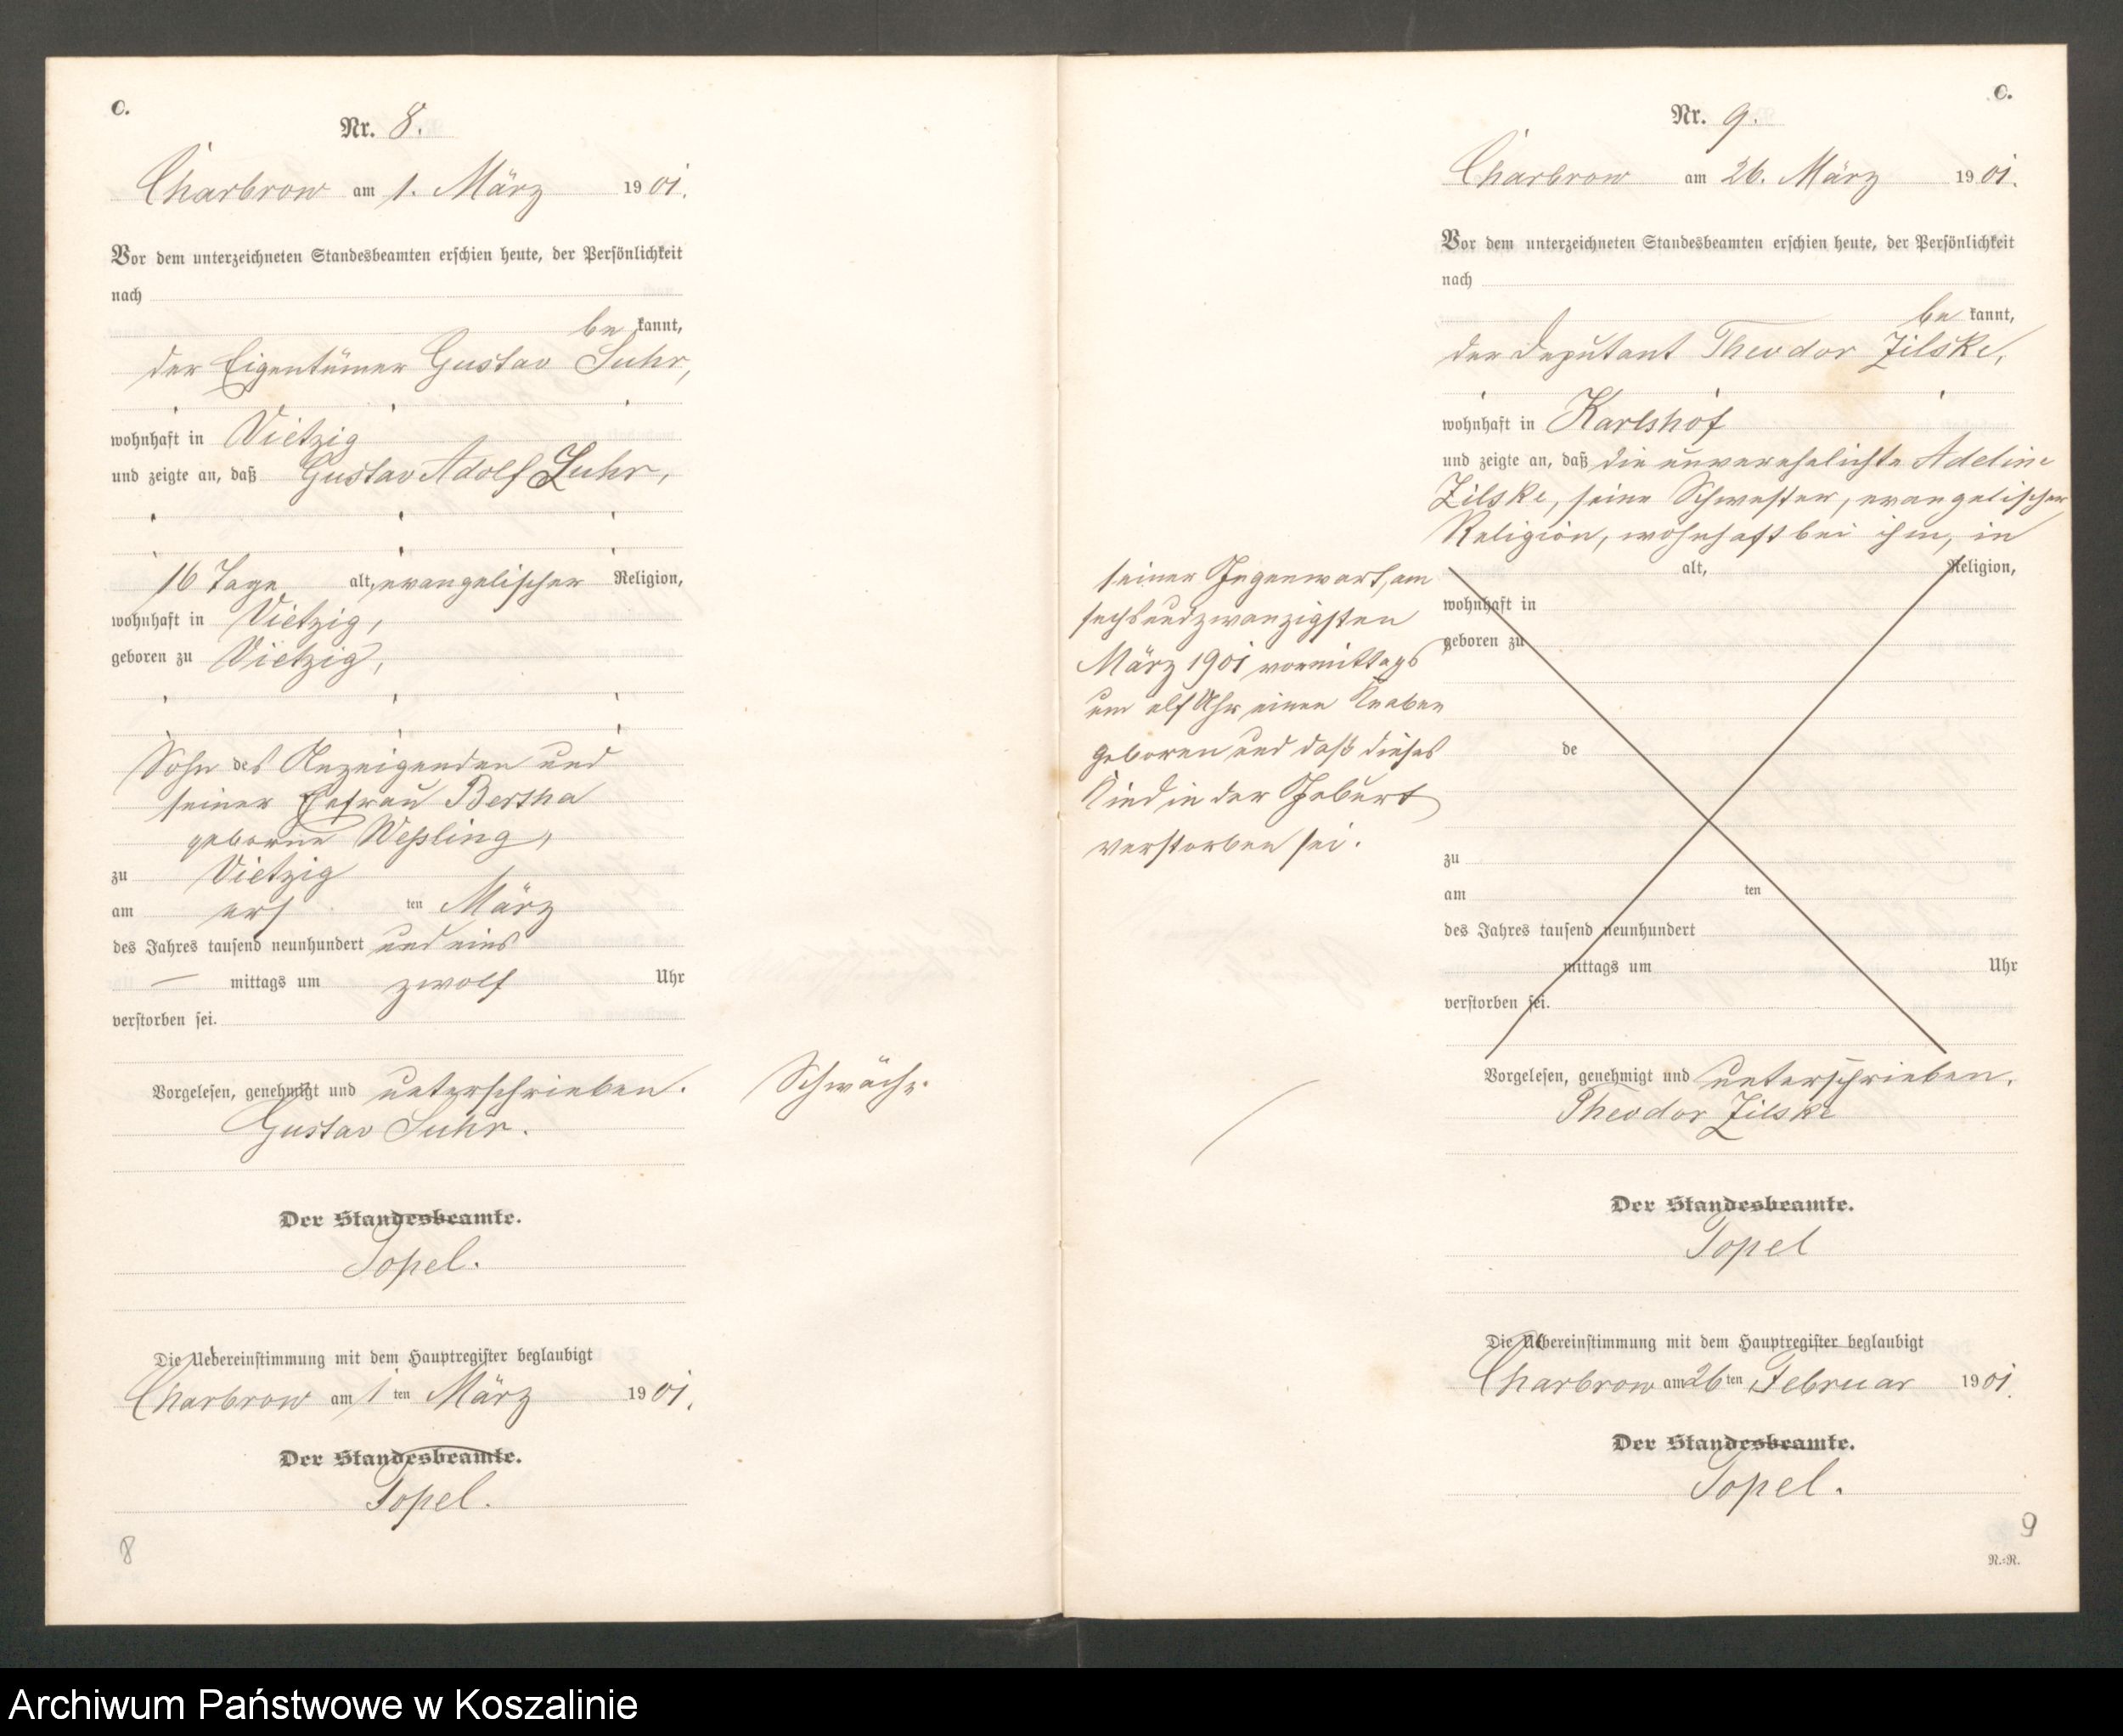 C.
Nr. 8.
Charbrow am 1. März 1901.
Vor dem unterzeichneten Standesbeamten erschien heute, der Persönlichkeit
nach
be kannt,
der Eigentümer Gustav Suhr,
wohnhaft in Vietzig
und zeigte an, daß Gustav Adolf Suhr,
16 Tage alt, evangelischer Religion,
wohnhaft in Vietzig,
geboren zu Vietzig,
Sohn des Anzeigenden und
seiner Ehefrau Bertha
geborne Weßling,
zu Vietzig
am ers ten März
des Jahres tausend neunhundert und eins
— mittags um zwolf Uhr
verstorben sei.
Vorgelesen, genehmigt und unterschrieben.
Gustav Suhr.
Schwäche
Der Standesbeamte.
Topel.
Die Uebereinstimmung mit dem Hauptregister beglaubigt
Charbrow am 1 ten März 1901.
Der Standesbeamte.
Topel.
8
C.
Nr. 9.
Charbrow am 26. März 1901.
Vor dem unterzeichneten Standesbeamten erschien heute, der Persönlichkeit
nach
be kannt,
der Deputant Theodor Zilske,
wohnhaft in Karlshof
und zeigte an, daß die unverehelichte Adeline
Zilske, seine Schwester, evangelischer
Religion, wohnhaft bei ihm, in
seiner Gegenwart, am
sechsundzwanzigsten
März 1901 vormittags
um elf Uhr einen Knaben
geboren und daß dieses
Kind in der Geburt
verstorben sei.
alt, Religion,
wohnhaft in
geboren zu
de
zu
am ten
des Jahres tausend neunhundert
mittags um Uhr
verstorben sei.
Vorgelesen, genehmigt und unterschrieben.
Theodor Zilske
Der Standesbeamte.
Topel
Die Uebereinstimmung mit dem Hauptregister beglaubigt
Charbrow am 26 ten Februar 1901.
Der Standesbeamte.
Topel.
9
N.-N.
Archiwum Państwowe w Koszalinie